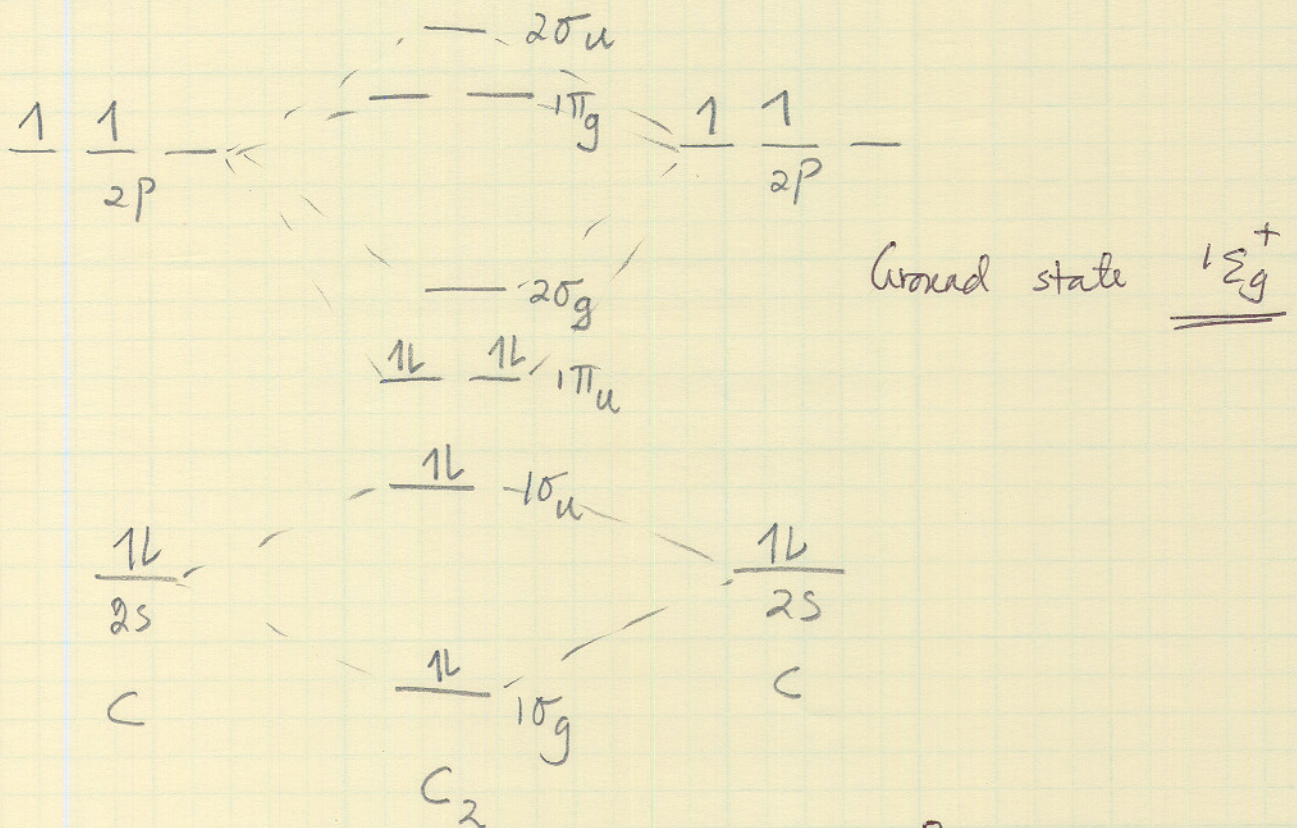 2σu
1πg
1 1
2p
1 1
2p
Ground state ¹Σg⁺
2σg
1L 1L 1πu
1L 1σu
1L
2s
1L
2s
1L 1σg
C
C
C₂